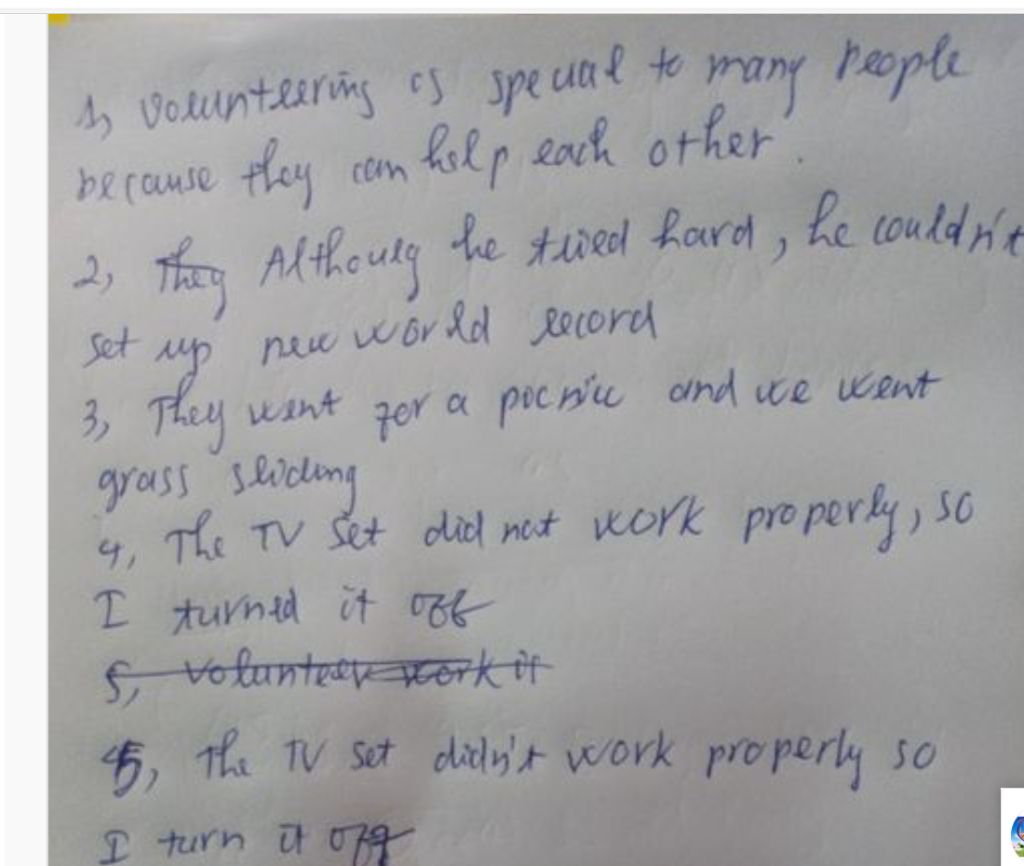 1, Volunteering is special to many people
because they can help each other.
2, They Althouhg he tried hard, he couldn't
set up new world record
3, They went for a picnic and we went
grass sliding
4, The TV set did not work properly, so
I turned it off
5, volunteer work it
5, The TV set didn't work properly so
I turn it off